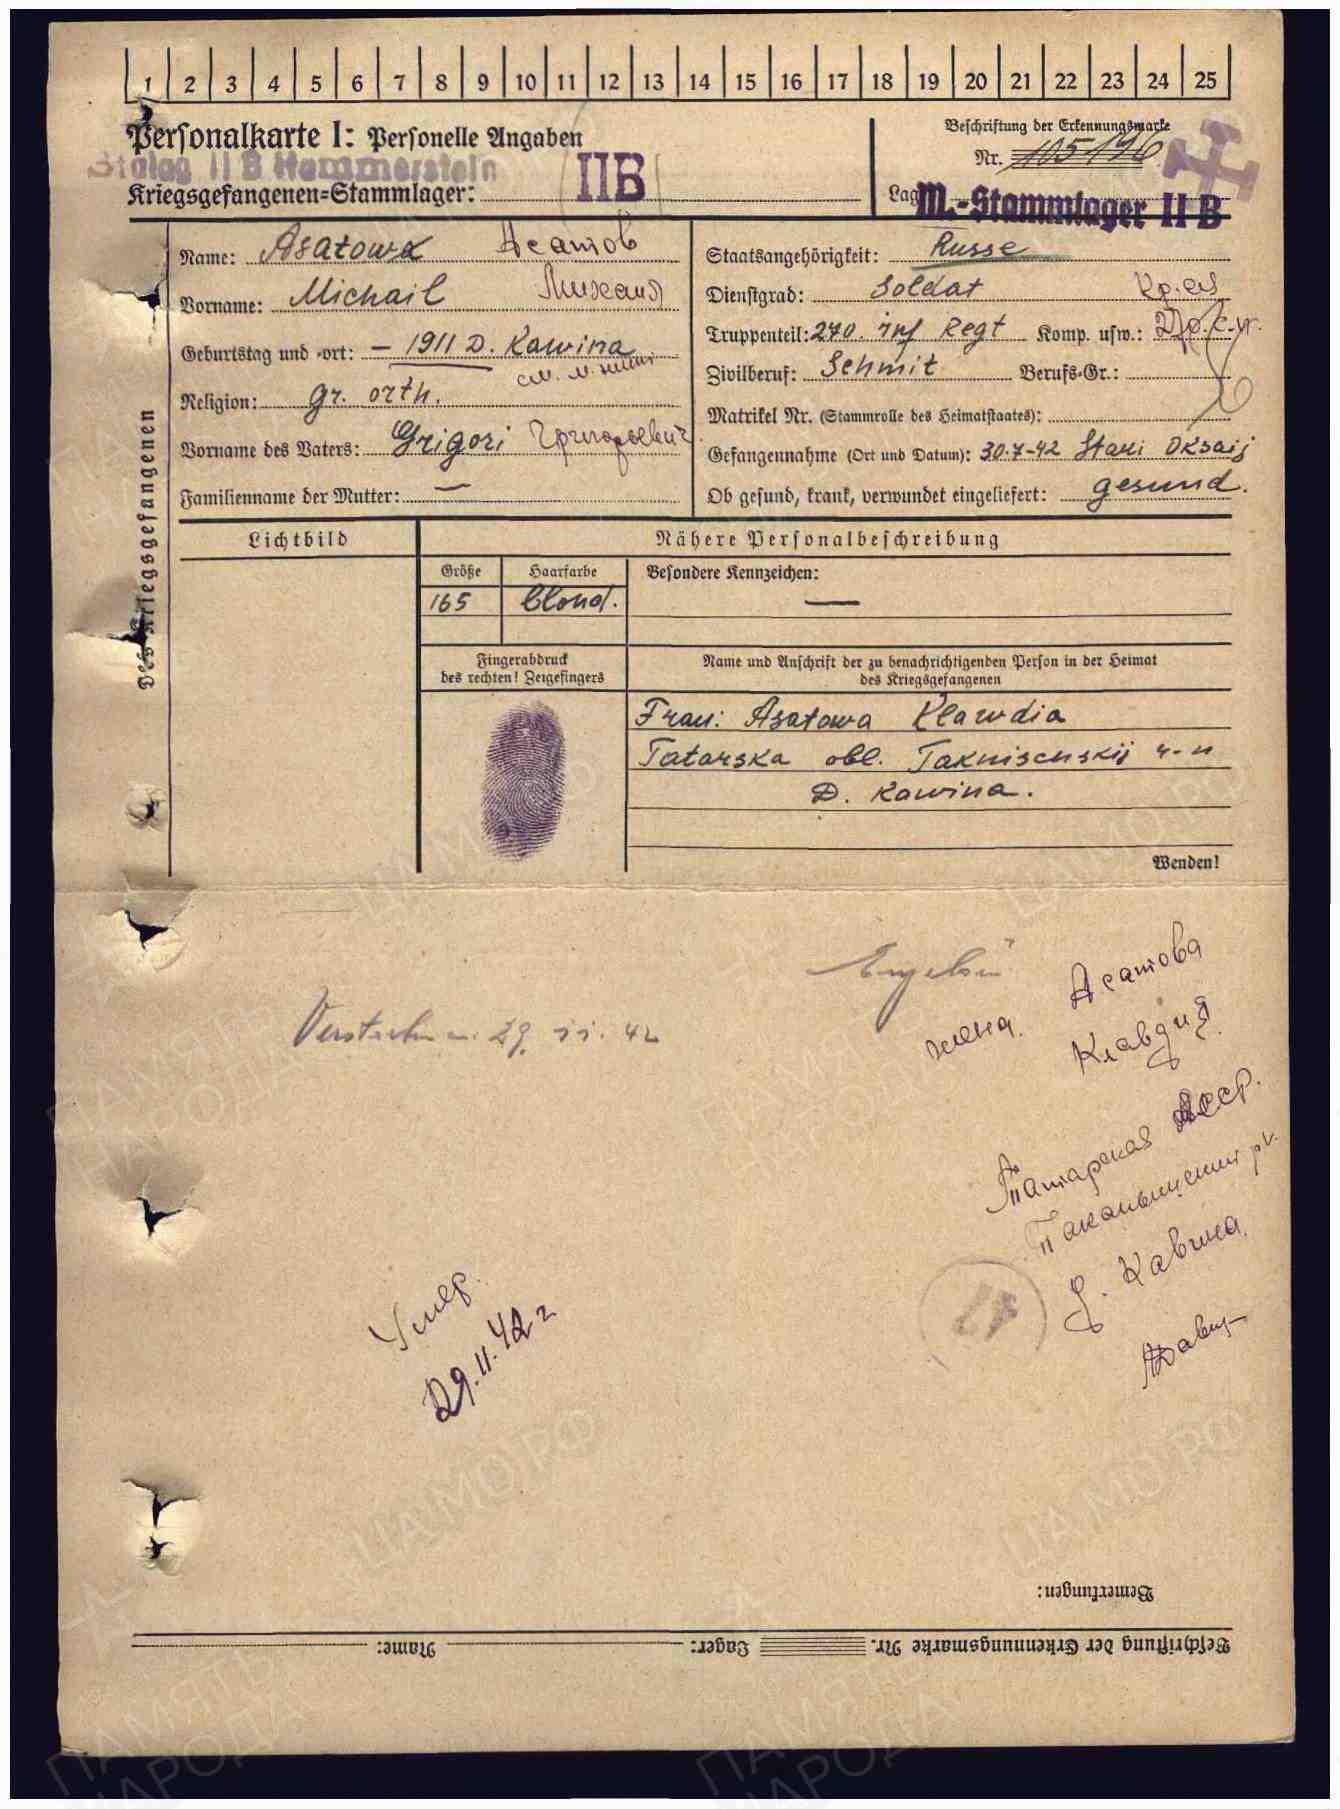 1 2 3 4 5 6 7 8 9 10 11 12 13 14 15 16 17 18 19 20 21 22 23 24 25
Personalkarte I: Personelle Angaben
Stalag II B Hammerstein
Kriegsgefangenen=Stammlager: II B
Beschriftung der Erkennungsmarke
Nr. 105196
Lag
M.-Stammlager II B
Des Kriegsgefangenen
Name: Asatowa Асатов
Vorname: Michail Михаил
Geburtstag und -ort: – 1911 D. Kawina
Religion: gr. orth.
Vorname des Vaters: Grigori Григорьевич
Familienname der Mutter: —
Staatsangehörigkeit: Russe
Dienstgrad: Soldat
Truppenteil: 270. inf Regt Komp. usw.:
Zivilberuf: Schmit Berufs-Gr.:
Matrikel Nr. (Stammrolle des Heimatstaates):
Gefangennahme (Ort und Datum): 30.7-42 Stari Oksaij
Ob gesund, krank, verwundet eingeliefert: gesund.
Lichtbild
Nähere Personalbeschreibung
Größe Haarfarbe Besondere Kennzeichen:
165 blond. —
Fingerabdruck
des rechten! Zeigefingers
Name und Anschrift der zu benachrichtigenden Person in der Heimat
des Kriegsgefangenen
Frau: Asatowa Klawdia
Tatarska obl. Taknischskij r-n
D. Kawina.
Wenden!
Verstorben 29. 11. 42
жена. Асатова
Клавдия
Татарская АССР.
Таканышский р.
д. Кавина
Умер.
29.11.42 г
42
Bemerkungen:
Beschriftung der Erkennungsmarke Nr. Lager: Name:
ПАМЯТЬ НАРОДА
ЦАМО.РФ